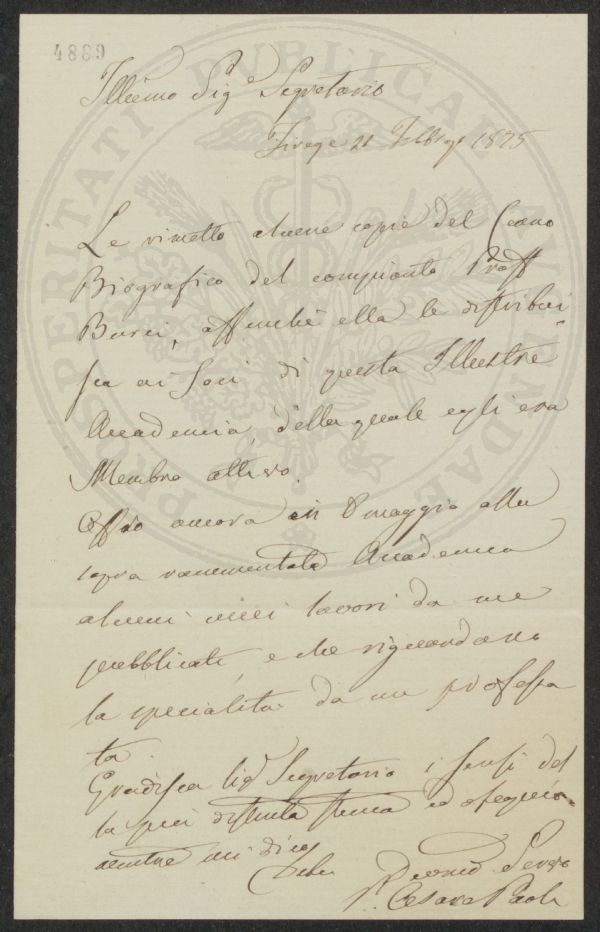 4889
Illmo Sigr Segretario
Firenze 21 Febbrajo 1875
Le rimetto alcune copie del Cenno
Biografico del compianto Proff
Burci, affinchè ella le distribui
sca ai Soci di questa Illustre
Accademia, della quale egli era
Membro attivo.
Offro ancora in omaggio alla
sopra rammentata Accademia
alcuni miei lavori da me
pubblicati, e che riguardano
la specialità da me professa
ta.
Gradisca Sigr Segretario i sensi del
la più distinta stima ed ossequio
mentre mi dico
Di Lei Devmo Servo
Cesare Paoli
PROSPERITATI PUBLICAE AUGENDAE